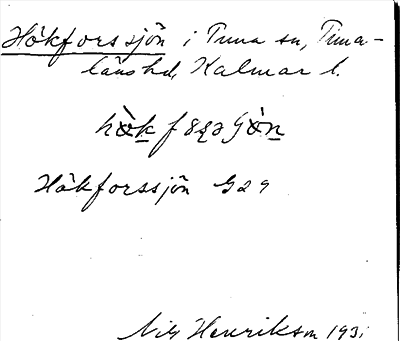 Hökforssjön i Tuna sn, Tuna-
läns hd, Kalmar l.
Hökforssjön G29
Nils Henrikson 193